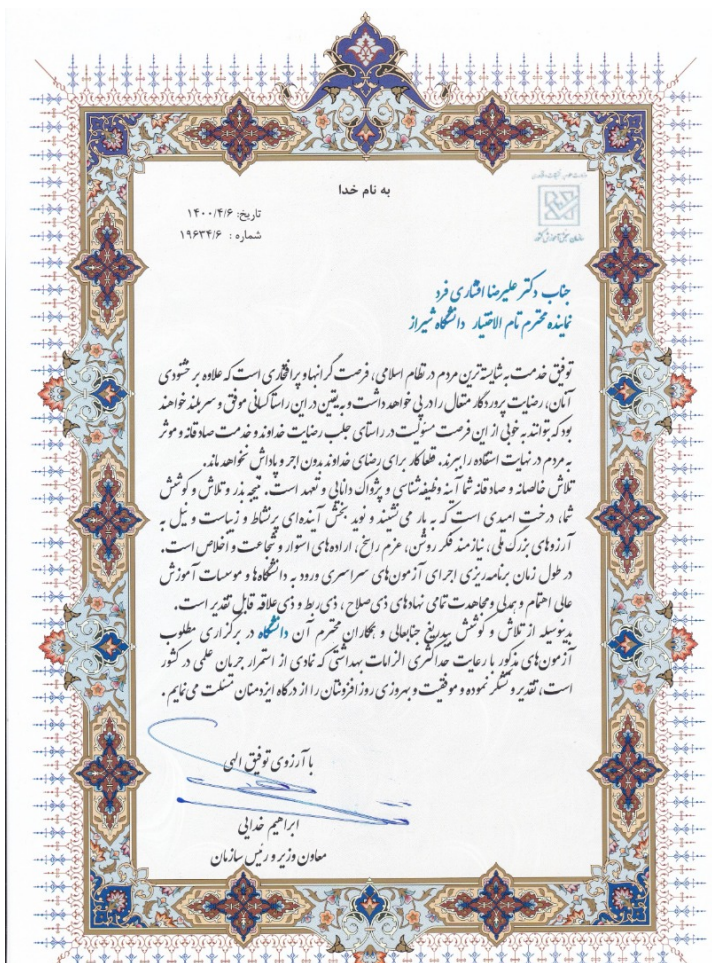 به نام خدا
وزارت علوم، تحقیقات و فناوری
سازمان سنجش آموزش کشور
تاریخ: ۱۴۰۰/۴/۶
شماره : ۱۹۶۳۴/۶
جناب دکتر علیرضا افشاری فرد
نماینده محترم تام الاختیار دانشگاه شیراز
توفیق خدمت به شایسته ترین مردم در نظام اسلامی، فرصت گرانبها و پرافتخاری است که علاوه بر خشنودی
آنان، رضایت پروردگار متعال را در پی خواهد داشت و به یقین در این راستا کسانی موفق و سربلند خواهند
بود که بتوانند به خوبی از این فرصت مسئولیت در راستای جلب رضایت خداوند و خدمت صادقانه و موثر
به مردم در نهایت استفاده را ببرند. قطعا کار برای رضای خداوند بدون اجر و پاداش نخواهد ماند.
تلاش خالصانه و صادقانه شما آینه وظیفه شناسی و پژواک دانایی و تعهد است. نتیجه بذر و تلاش و کوشش
شما، درخت امیدی است که به بار می نشیند و نوید بخش آینده ای پرنشاط و زیباست و نیل به
آرزوهای بزرگ ملی، نیازمند فکر روشن، عزم راسخ، اراده های استوار و شجاعت و اخلاص است.
در طول زمان برنامه ریزی اجرای آزمون های سراسری ورود به دانشگاه ها و موسسات آموزش
عالی اهتمام و همدلی و مجاهدت تمامی نهادهای ذی صلاح ، ذی ربط و ذی علاقه قابل تقدیر است.
بدینوسیله از تلاش و کوشش بیدریغ جنابعالی و همکاران محترم آن دانشگاه در برگزاری مطلوب
آزمون های مذکور با رعایت حداکثری الزامات بهداشتی که نمادی از استمرار جریان علمی در کشور
است، تقدیر و تشکر نموده و موفقیت و بهروزی روز افزونتان را از درگاه ایزد منان مسئلت می نمایم .
با آرزوی توفیق الهی
ابراهیم خدایی
معاون وزیر و رئیس سازمان